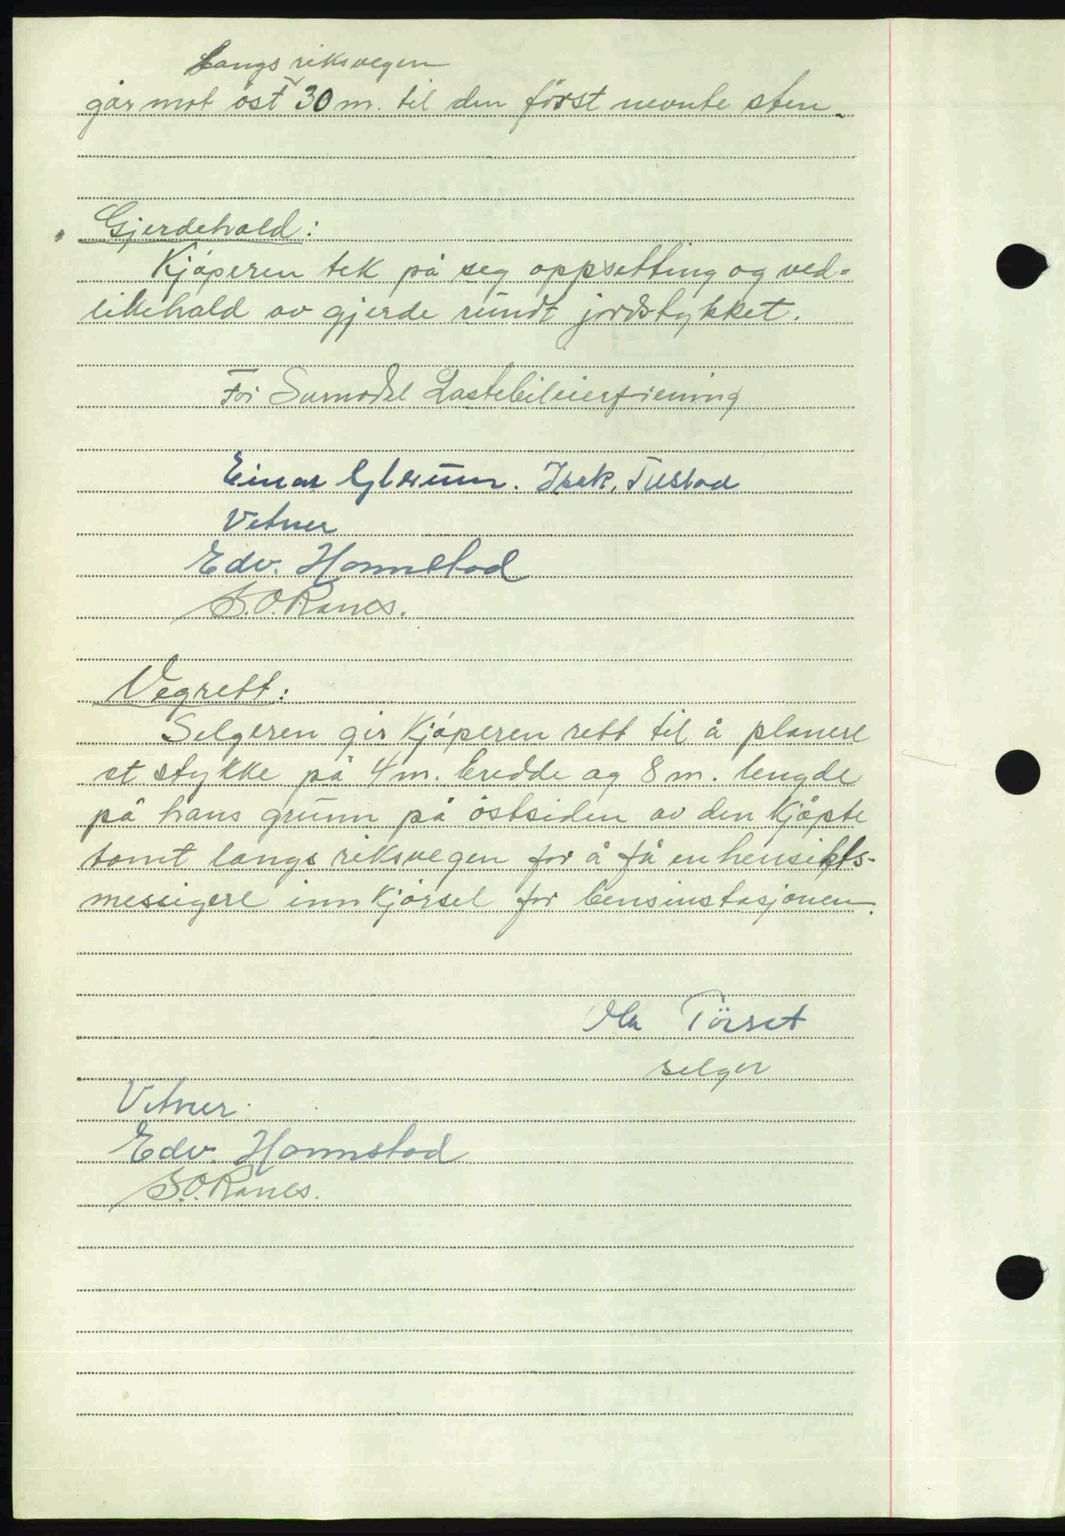 Langs riksvegen
går mot öst 30 m. til den först nevnte sten.
Gjerdehald:
Kjøperen tek på seg oppsetting og ved-
likehald av gjerde rundt jordstykket.
For Surnadal Lastebileierforening
Einar Isak. Tellstad
Vitner
Edv. Honnstad
S. O. Ranes.
Vegrett:
Selgeren gir kjøperen rett til å planere
et stykke på 4 m. bredde og 8 m. lengde
på hans grunn på östsiden av den kjøpte
tomt langs riksvegen for å få en hensikts-
messigere innkjörsel for bensinstasjonen.
Ola Törset
selger
Vitner.
Edv. Honnstad
S. O. Ranes.